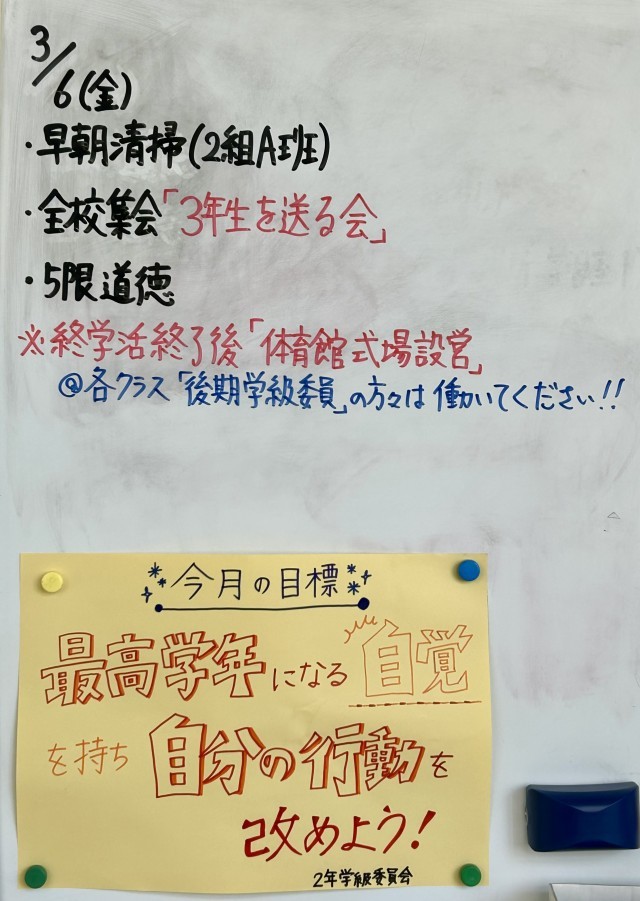 3/6(金)
・早朝清掃(2組A班)
・全校集会「3年生を送る会」
・5限道徳
※終学活終了後「体育館式場設営」
@各クラス「後期学級委員」の方々は働いてください!!
今月の目標
最高学年になる自覚
を持ち自分の行動を
改めよう!
2年学級委員会